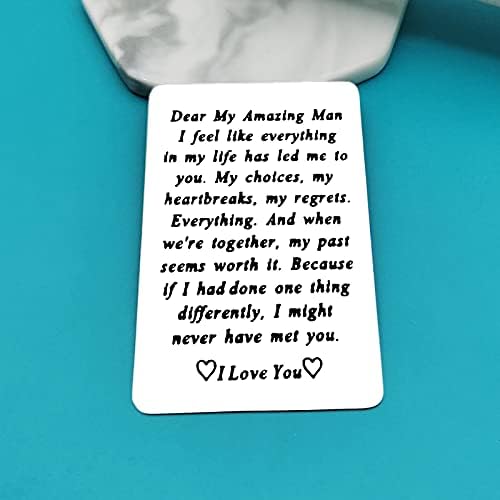 Dear My Amazing Man
I feel like everything
in my life has led me to
you. My choices, my
heartbreaks, my regrets.
Everything. And when
we're together, my past
seems worth it. Because
if I had done one thing
differently, I might
never have met you.
♡I Love You♡